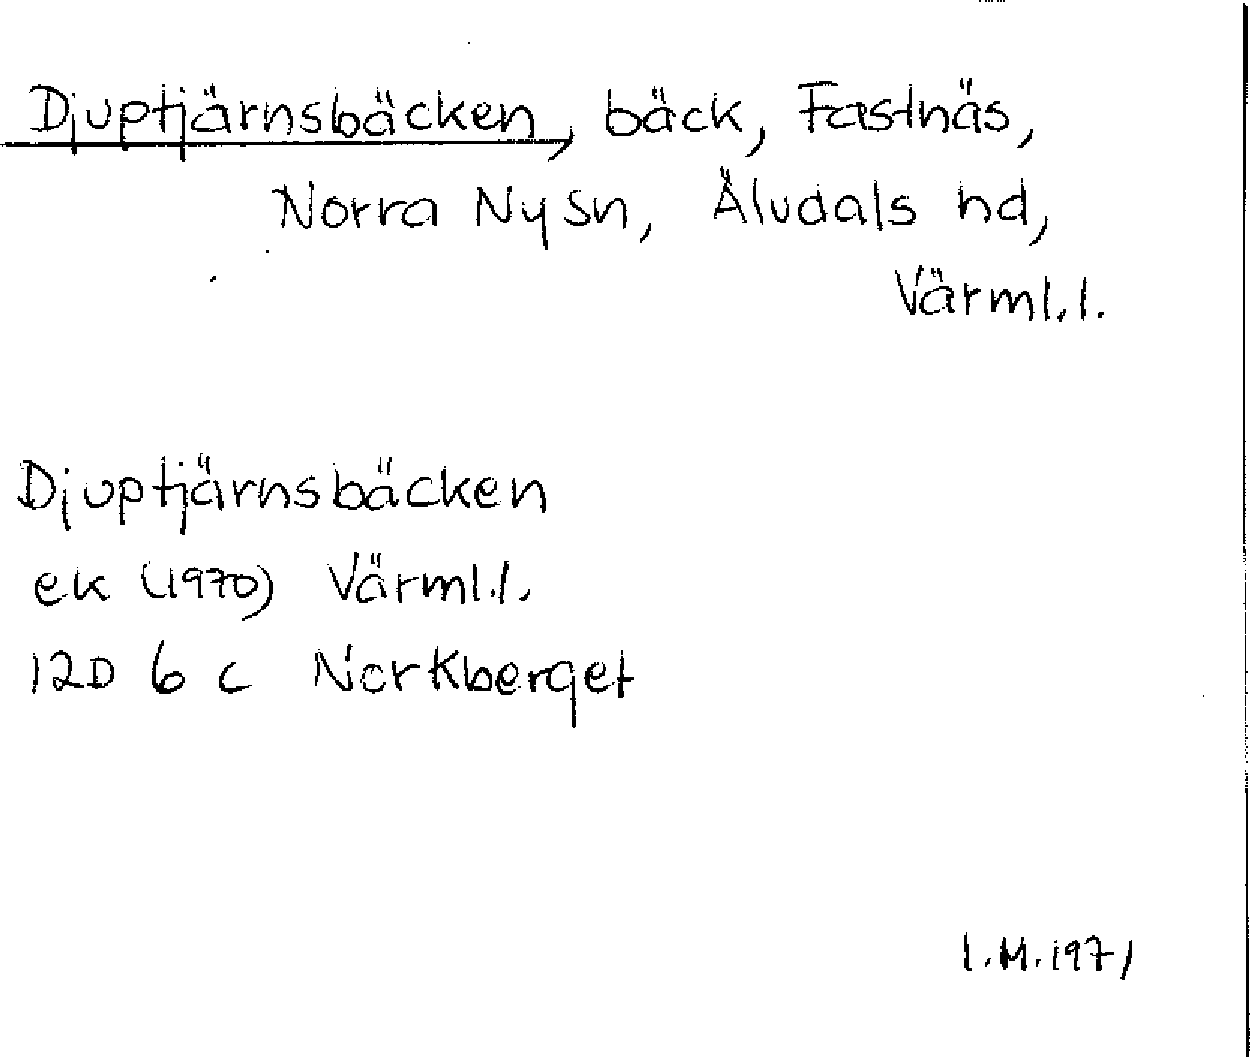 Djuptjärnsbäcken, bäck, Fastnäs,
Norra Ny sn, Älvdals hd,
Värml.l.
Djuptjärnsbäcken
ek (1970) Värml.l.
12D 6 c Norkberget
I.M.1971